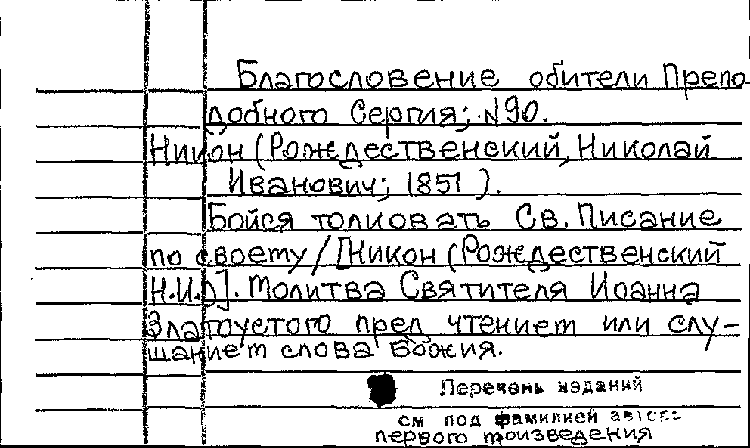 Благословение обители Препо
добного Сергия; №90.
Никон (Рождественский, Николай
Иванович; 1851 ).
Бойся толковать Св. Писание
по своему / [Никон (Рождественский
Н.И.)]. Молитва Святителя Иоанна
Златоустого пред чтением или слу-
шанием слова Божия.
Перечень изданий
см под фамилией автора
первого произведения